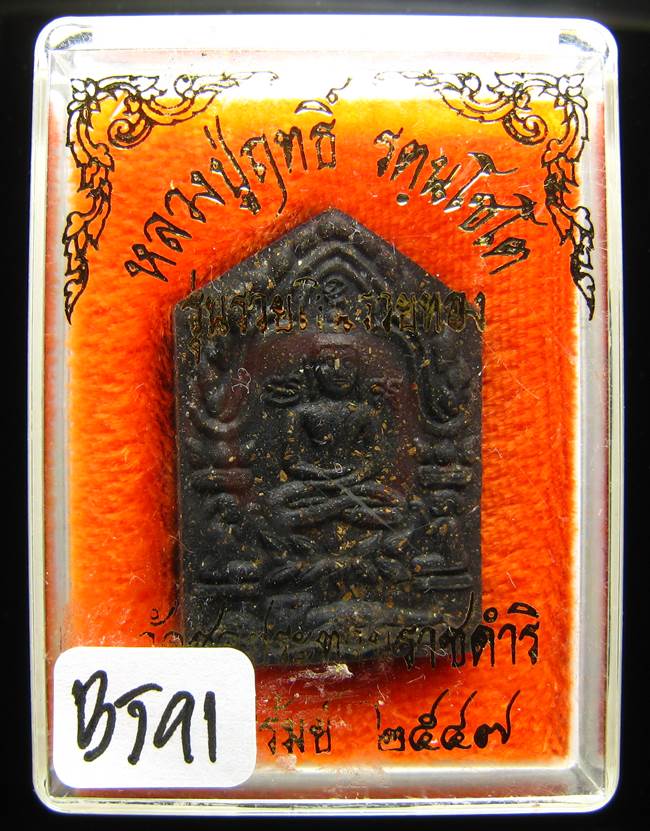 หลวงปู่ฤทธิ์ รตฺนโชโต
รุ่นรวยเงินรวยทอง
วัดชลประทานราชดำริ
รัมย์ ๒๕๔๗